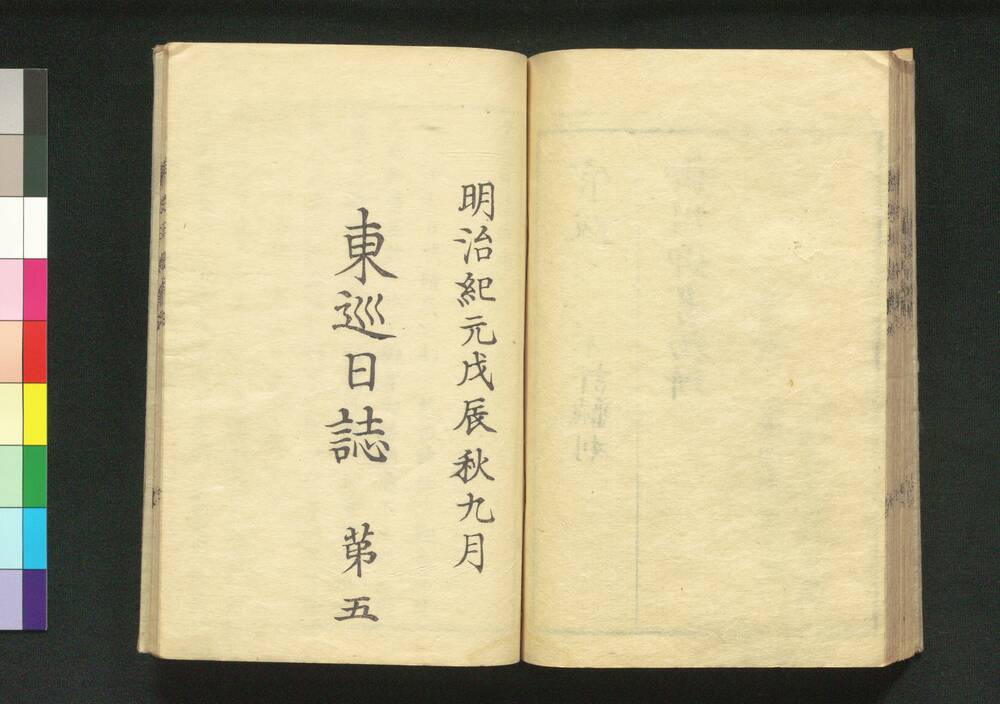 明治紀元戊辰秋九月
東巡日誌 第五